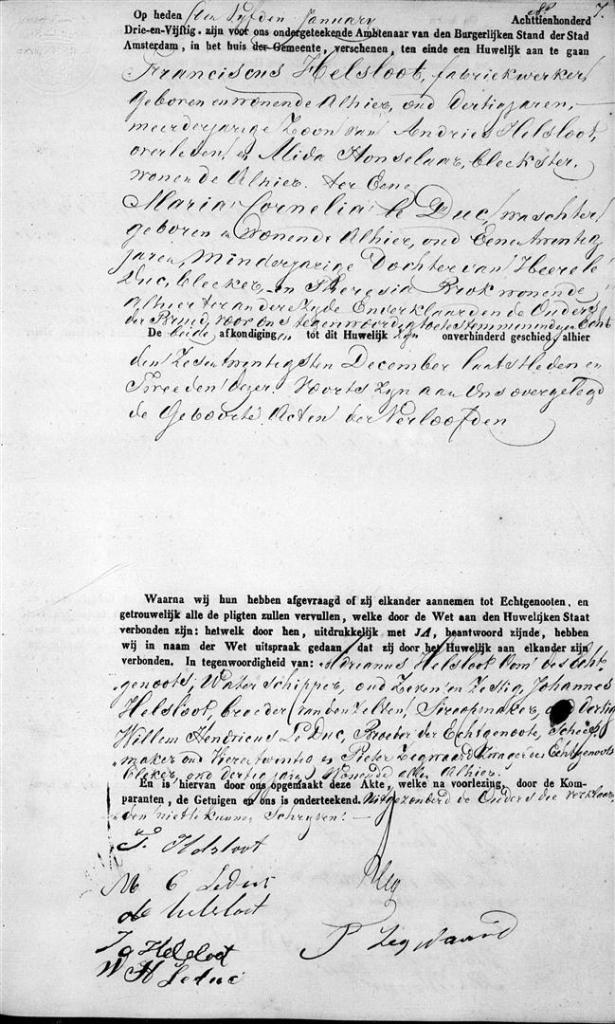 7.
Op heden den Vyfden January Achttienhonderd
Drie-en-Vijftig, zijn voor ons ondergeteekende Ambtenaar van den Burgerlijken Stand der Stad
Amsterdam, in het huis der Gemeente, verschenen, ten einde een Huwelijk aan te gaan
Franciscus Helsloot, fabriekwerker
geboren en wonende Alhier, oud dertig jaren,
meerderjarige Zoon van Andries Helsloot,
overleden en Alida Honselaar, bleekster,
wonende Alhier. ter Eene
Maria Cornelia le Duc, waschter
geboren en wonende Alhier, oud Eenentwintig
jaren, Minderjarige Dochter van Heere le
Duc, bleeker, en Theresia Brok wonende
Alhier ter andere Zyde En verklaarden de Ouders
der Bruid, voor ons tegenwoordig toe te stemmen in deze Echt
De beide afkondigingen tot dit Huwelijk zijn onverhinderd geschied, alhier
den Zesentwintigsten December laatstleden en
Tweeden dezer. Voorts zyn aan Ons overgelegd
de Geboorte Acten der Verloofden
Waarna wij hun hebben afgevraagd of zij elkander aannemen tot Echtgenooten, en
getrouwelijk alle de pligten zullen vervullen, welke door de Wet aan den Huwelijken Staat
verbonden zijn: hetwelk door hen, uitdrukkelijk met JA, beantwoord zijnde, hebben
wij in naam der Wet uitspraak gedaan, dat zij door het Huwelijk aan elkander zijn
verbonden. In tegenwoordigheid van: Adrianus Helsloot Oom des Echt
genoots, Waterschipper, oud Zeven en Zestig, Johannes
Helsloot, broeder van denzelven, Siroopmaker, oud dertig
Willem Hendricus Le Duc, Broeder der Echtgenoote, Scheeps
maker oud Vierentwintig en Pieter Zegwaard Zwager des Echtgenoots
bleker, oud dertig jaren Wonende allen Alhier.
En is hiervan door ons opgemaakt deze Akte, welke na voorlezing, door de Kom-
paranten, de Getuigen en ons is onderteekend. Uitgezonderd de Ouders die verklaar
den niet te kunnen Schryven.
F. Helsloot
M C Leduc
de helsloot
J G Helsloot
P Zegwaard
W H Leduc